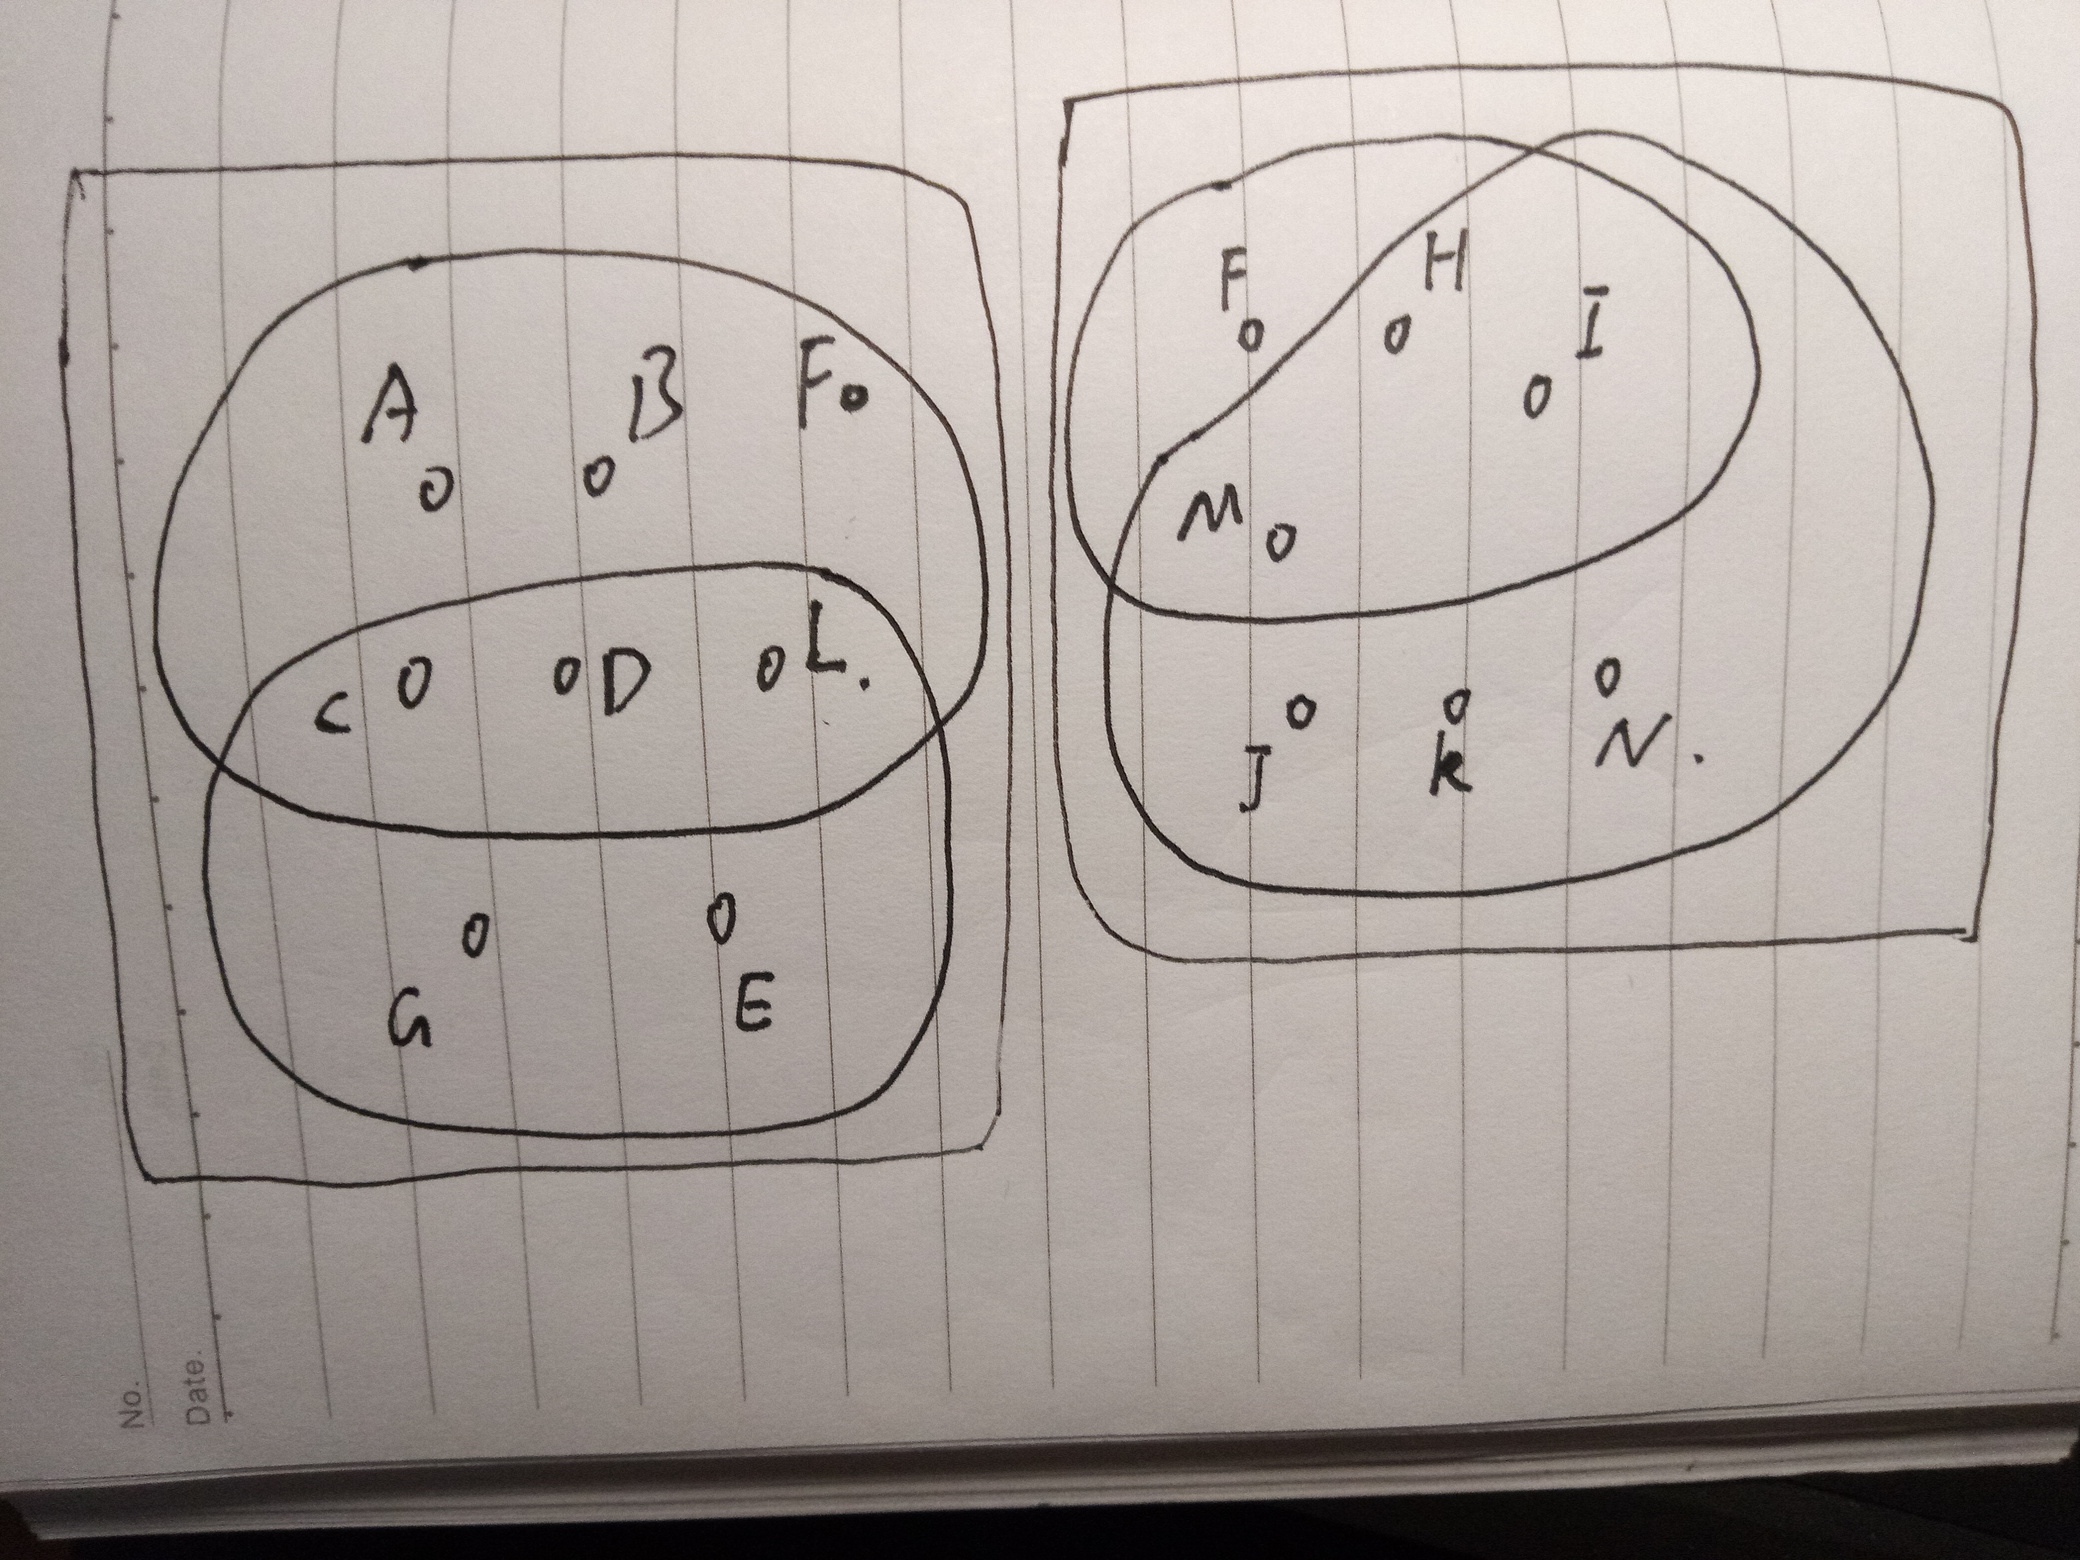 A B F
C D L.
G E
F H I
M
J K N.
No.
Date.